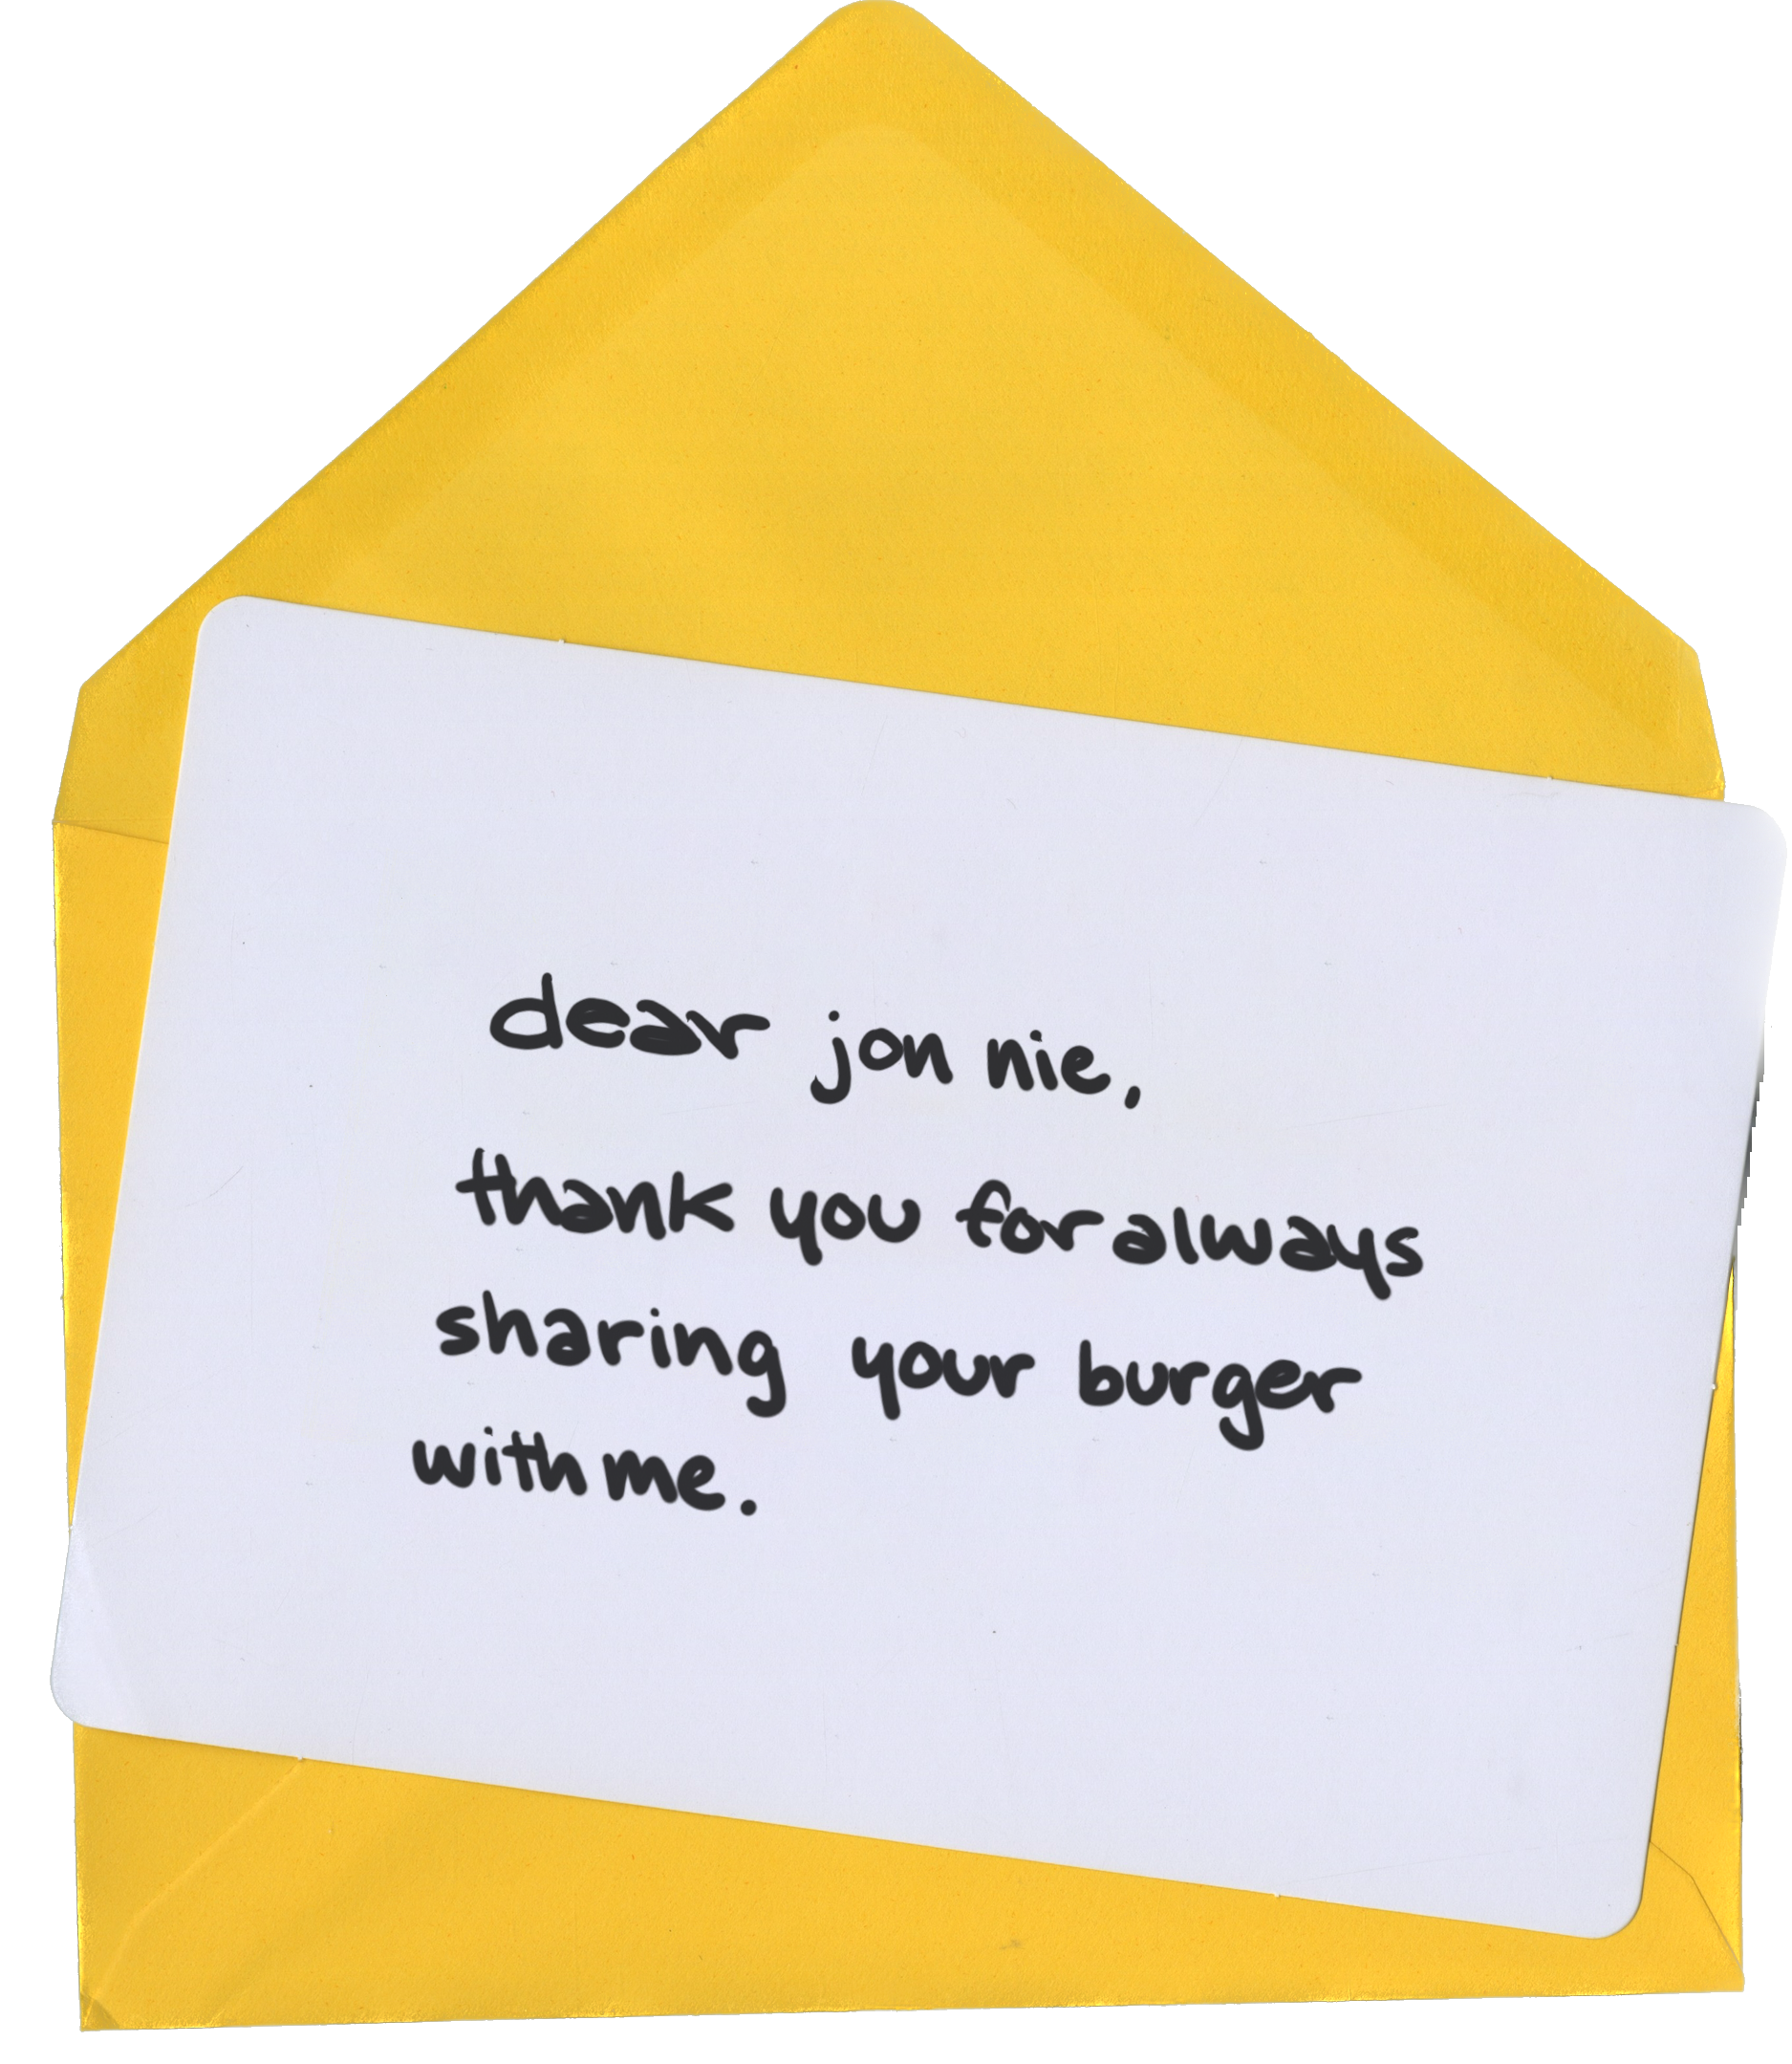 dear jon nie,
thank you for always
sharing your burger
with me.